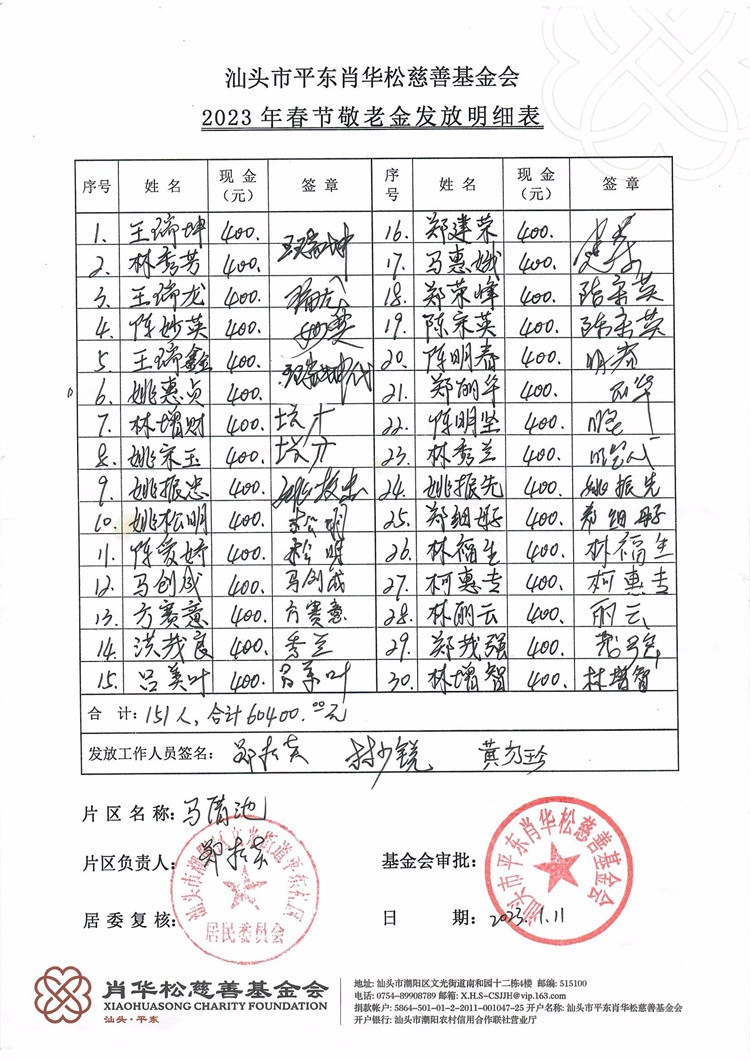 汕头市平东肖华松慈善基金会
2023年春节敬老金发放明细表
序号 姓名 现金（元） 签章 序号 姓名 现金（元） 签章
1. 王瑞坤 400. 王瑞坤 16. 郑建荣 400.
2. 林秀芳 400. 17. 马惠娥 400.
3. 王瑞龙 400. 瑞龙 18. 郑荣峰 400. 陈宋英
4. 陈妙英 400. 妙英 19. 陈宋英 400. 陈宋英
5. 王瑞鑫 400. 王瑞坤代 20. 陈明春 400. 明春
6. 姚惠贞 400. 21. 郑丽华 400. 丽华
7. 林增财 400. 22. 陈明坚 400. 明坚
8. 姚宋玉 400. 23. 林秀兰 400. 明坚代
9. 姚振忠 400. 姚振忠 24. 姚振先 400. 姚振先
10. 姚松明 400. 松明 25. 郑细彬 400.
11. 陈爱娇 400. 松明 26. 林福生 400. 林福生
12. 马创成 400. 马创成 27. 柯惠专 400. 柯惠专
13. 方赛意 400. 方赛意 28. 林丽云 400. 丽云
14. 洪哉良 400. 秀兰 29. 郑哉强 400.
15. 吕美叶 400. 吕美叶 30. 林增智 400. 林增智
合 计：151人，合计60400.00元
发放工作人员签名： 林少锐 黄
片区名称：马清池
片区负责人：
基金会审批：
居委复核：
日 期：2023.1.11
居民委员会
汕头市平东肖华松慈善基金会
肖华松慈善基金会
XIAOHUASONG CHARITY FOUNDATION
汕头·平东
地址: 汕头市潮阳区文光街道南和园十二栋4楼 邮编: 515100
电话: 0754-89908789 邮箱: X.H.S-CSJJH@vip.163.com
捐款帐户: 5864-501-01-2-2011-001047-25 开户名称: 汕头市平东肖华松慈善基金会
开户银行: 汕头市潮阳农村信用合作联社营业厅